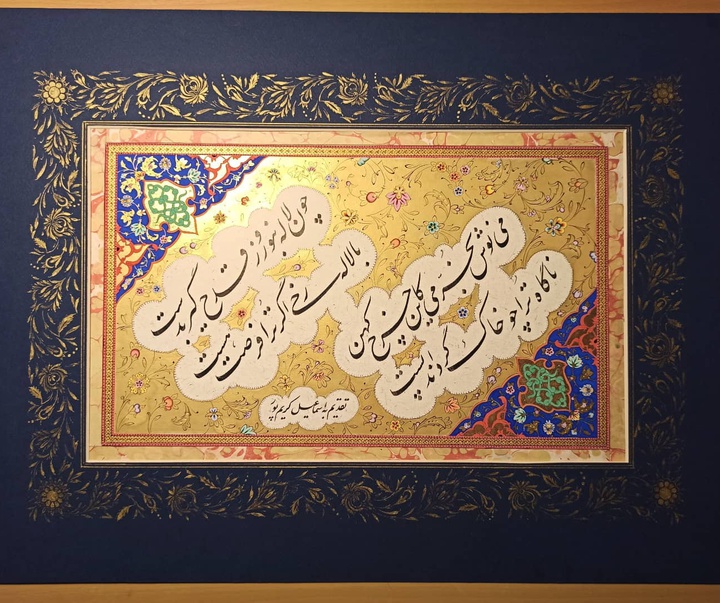 چون لاله بنوروز قدح گیر بدست
با لاله رخی اگر ترا فرصت هست
می نوش بخرمی کاین چرخ کهن
ناگاه ترا چو خاک گرداند پست
تقدیم به اسماعیل کریم پور